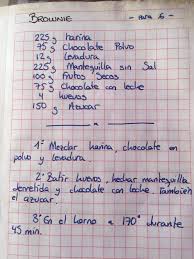 BROWNIE - para 6 -
225 g harina
75 g Chocolate Polvo
12 g Levadura
225 g Mantequilla sin Sal
100 g Frutos Secos
75 g Chocolate con leche
4 huevos
150 g Azucar
1º Mezclar harina, chocolate en
polvo y levadura.
2º Batir huevos, hechar mantequilla
derretida y chocolate con leche. También
el azucar.
3º En el horno a 170º durante
45 min.